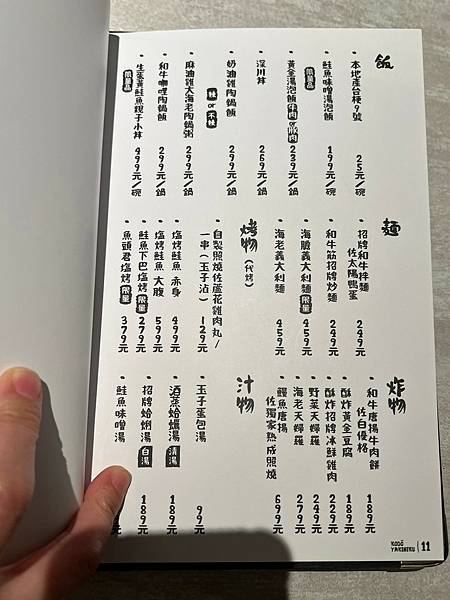 飯
・本地產台梗9號 25元/碗
・鮭魚味噌湯泡飯 199元/碗
限量品
・黃金湯泡飯 牛肉or豚肉 239元/鍋
・深川丼 269元/鍋
・奶油雞陶鍋飯 299元/鍋
辣 or 不辣
・麻油雞大海老陶鍋粥 299元/鍋
・和牛咖哩陶鍋飯 299元/鍋
・生蛋黃鮭魚親子小丼 499元/碗
限量品
麵
・招牌和牛拌麵
佐太陽鴨蛋 249元
・和牛筋招牌炒麵 249元
・海膽義大利麵 限量 459元
・海老義大利麵 459元
烤物(代烤)
・自製照燒佐蘆花雞肉丸/
一串(玉子沾) 129元
・塩烤鮭魚 赤身 499元
・塩烤鮭魚 大腹 599元
・鮭魚下巴塩烤 限量 279元
・魚頭君塩烤 限量 379元
炸物
・和牛唐揚牛肉餅
佐白優格 189元
・酥炸黃金豆腐 189元
・酥炸招牌冰鮮雞肉 229元
・野菜天婦羅 249元
・海老天婦羅 279元
・鰻魚唐揚
佐獨家熟成照燒 699元
汁物
・玉子蛋包湯 99元
・酒蒸蛤蠣湯 清湯 189元
・招牌蛤蜊湯 白湯 189元
・鮭魚味噌湯
KODŌ
YAKINIKU 11